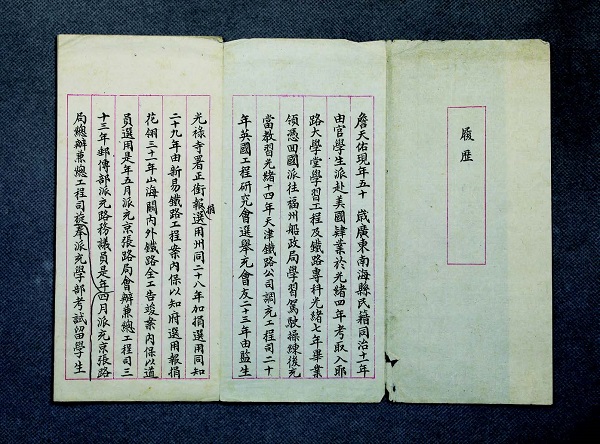 履歷
詹天佑現年五十 歲廣東南海縣民籍同治十一年
由官學生派赴美國肄業於光緒四年考取入耶
路大學堂學習工程及鐵路專科光緒七年畢業
領憑回國派往福州船政局學習駕駛操練後充
當教習光緒十四年天津鐵路公司調充工程司二十
年英國工程研究會選舉充會友二十三年由監生
光祿寺署正銜報捐選用州同二十八年加捐選用同知
二十九年由新易鐵路工程案內保以知府選用報捐
花翎三十一年山海關內外鐵路全工告竣案內保以道
員選用是年五月派充京張路局會辦兼總工程司三
十三年郵傳部派充路務議員是年四月派充京張路
局總辦兼總工程司旋奉派充學部考試留學生